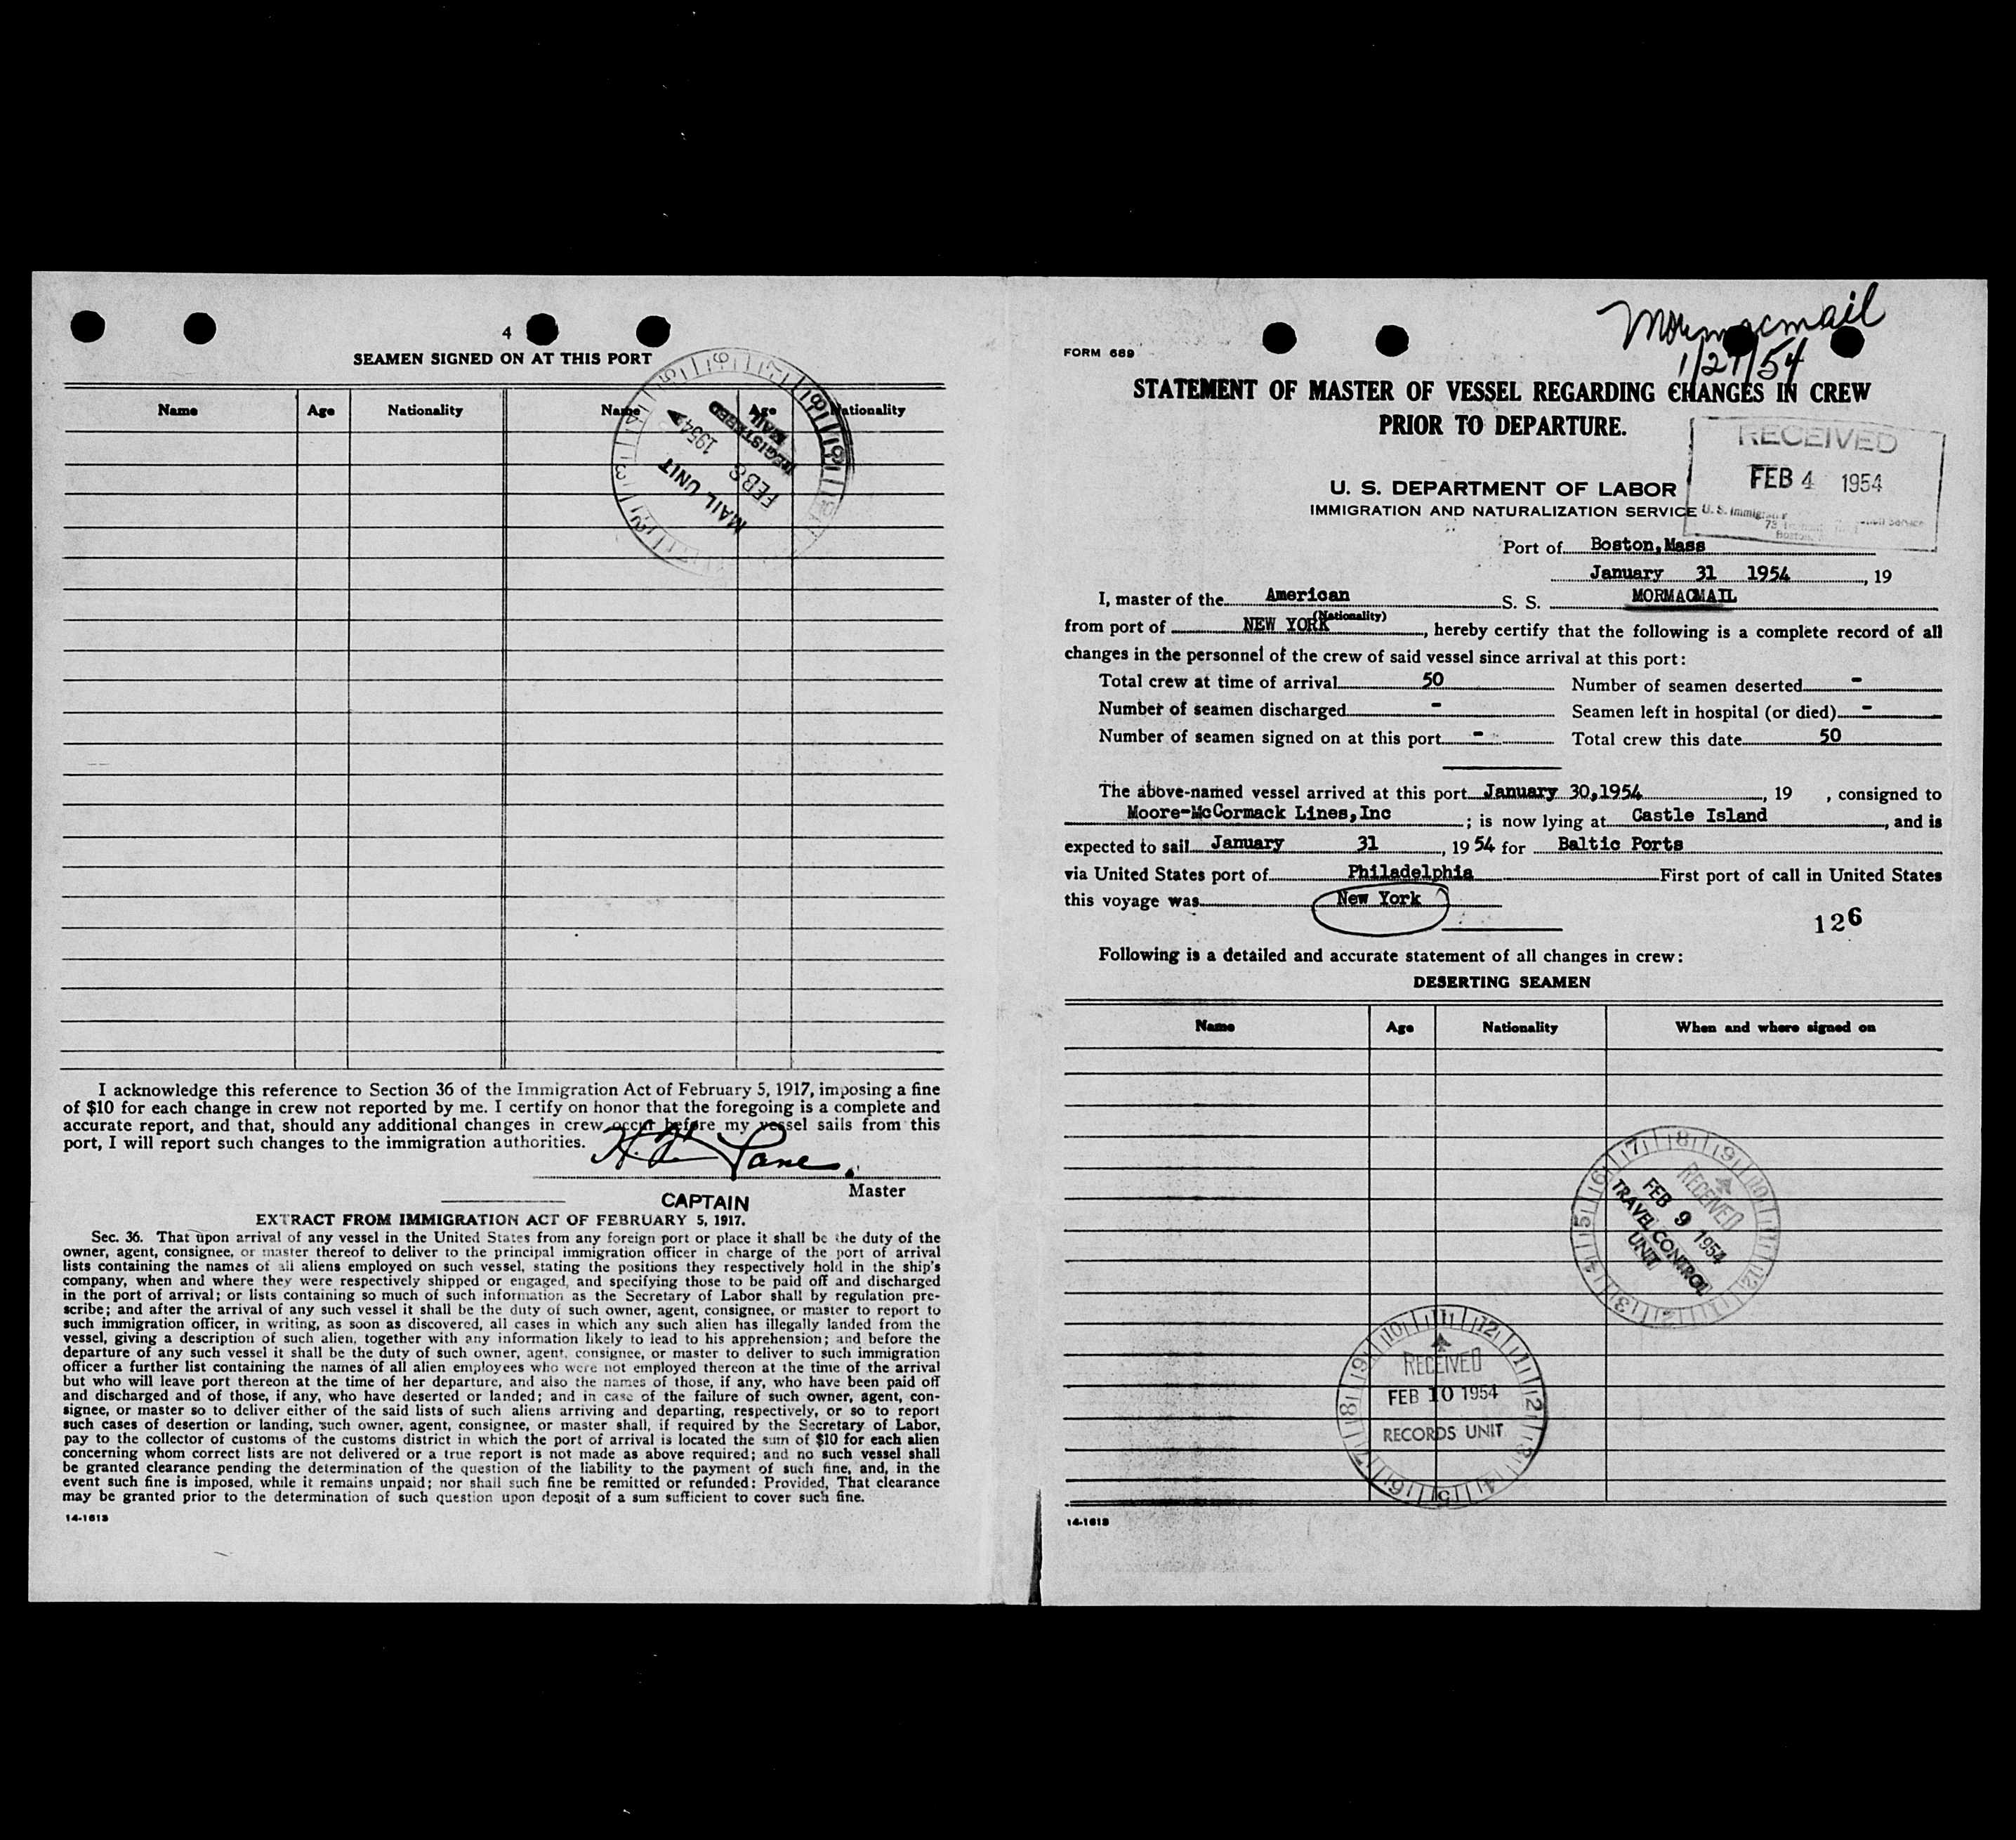 4
SEAMEN SIGNED ON AT THIS PORT
Name Age Nationality Name Age Nationality
REGISTERED
MAIL
1954
FEB 8
MAIL UNIT
I acknowledge this reference to Section 36 of the Immigration Act of February 5, 1917, imposing a fine
of $10 for each change in crew not reported by me. I certify on honor that the foregoing is a complete and
accurate report, and that, should any additional changes in crew occur before my vessel sails from this
port, I will report such changes to the immigration authorities.
Lane
Master
CAPTAIN
EXTRACT FROM IMMIGRATION ACT OF FEBRUARY 5, 1917.
Sec. 36. That upon arrival of any vessel in the United States from any foreign port or place it shall be the duty of the
owner, agent, consignee, or master thereof to deliver to the principal immigration officer in charge of the port of arrival
lists containing the names of all aliens employed on such vessel, stating the positions they respectively hold in the ship's
company, when and where they were respectively shipped or engaged, and specifying those to be paid off and discharged
in the port of arrival; or lists containing so much of such information as the Secretary of Labor shall by regulation pre-
scribe; and after the arrival of any such vessel it shall be the duty of such owner, agent, consignee, or master to report to
such immigration officer, in writing, as soon as discovered, all cases in which any such alien has illegally landed from the
vessel, giving a description of such alien, together with any information likely to lead to his apprehension; and before the
departure of any such vessel it shall be the duty of such owner, agent, consignee, or master to deliver to such immigration
officer a further list containing the names of all alien employees who were not employed thereon at the time of the arrival
but who will leave port thereon at the time of her departure, and also the names of those, if any, who have been paid off
and discharged and of those, if any, who have deserted or landed; and in case of the failure of such owner, agent, con-
signee, or master so to deliver either of the said lists of such aliens arriving and departing, respectively, or so to report
such cases of desertion or landing, such owner, agent, consignee, or master shall, if required by the Secretary of Labor,
pay to the collector of customs of the customs district in which the port of arrival is located the sum of $10 for each alien
concerning whom correct lists are not delivered or a true report is not made as above required; and no such vessel shall
be granted clearance pending the determination of the question of the liability to the payment of such fine, and, in the
event such fine is imposed, while it remains unpaid; nor shall such fine be remitted or refunded: Provided, That clearance
may be granted prior to the determination of such question upon deposit of a sum sufficient to cover such fine.
14-1613
Mormacmail
1/27/54
FORM 689
STATEMENT OF MASTER OF VESSEL REGARDING CHANGES IN CREW
PRIOR TO DEPARTURE.
RECEIVED
FEB 4 1954
U. S. DEPARTMENT OF LABOR
IMMIGRATION AND NATURALIZATION SERVICE
Port of Boston, Mass
January 31 1954, 19
I, master of the American S. S. MORMACMAIL
(Nationality)
from port of NEW YORK, hereby certify that the following is a complete record of all
changes in the personnel of the crew of said vessel since arrival at this port:
Total crew at time of arrival 50 Number of seamen deserted -
Number of seamen discharged - Seamen left in hospital (or died) -
Number of seamen signed on at this port - Total crew this date 50
The above-named vessel arrived at this port January 30,1954, 19 , consigned to
Moore-McCormack Lines,Inc ; is now lying at Castle Island, and is
expected to sail January 31, 19 54 for Baltic Ports
via United States port of Philadelphia First port of call in United States
this voyage was New York
126
Following is a detailed and accurate statement of all changes in crew:
DESERTING SEAMEN
Name Age Nationality When and where signed on
RECEIVED
FEB 9 1954
TRAVEL CONTROL
UNIT
RECEIVED
FEB 10 1954
RECORDS UNIT
14-1613